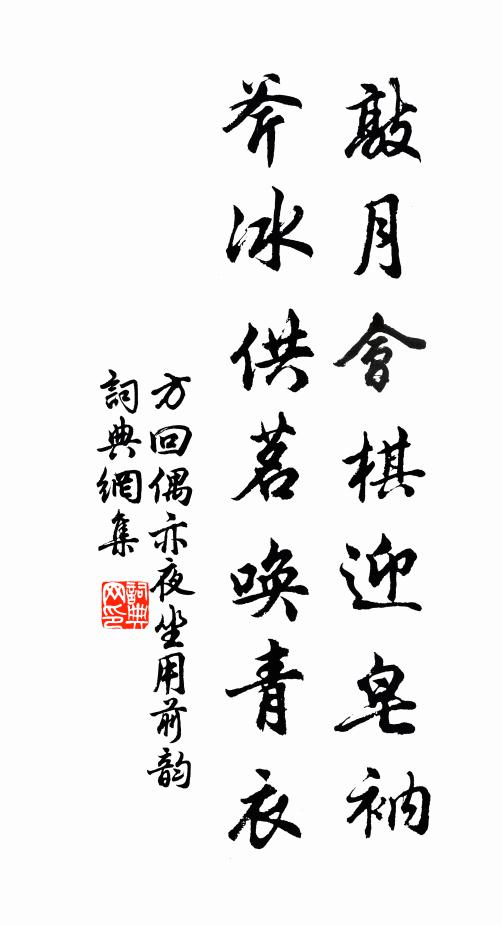 敲月會棋迎皂衲
斧冰供茗喚青衣
方回偶亦夜坐用前韵
詞典網集
詞典网印